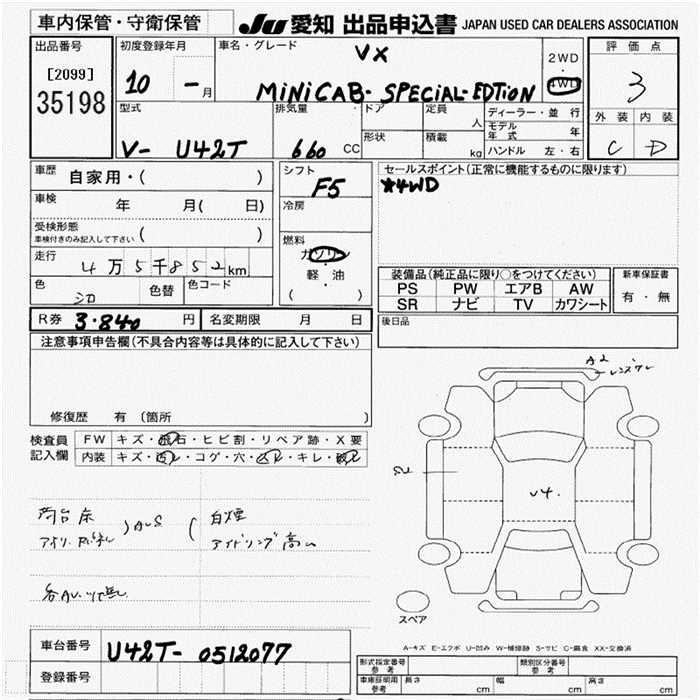 車内保管・守衛保管
JU 愛知 出品申込書 JAPAN USED CAR DEALERS ASSOCIATION
出品番号
[2099]
35198
初度登録年月
10 - 月
車名・グレード
VX
MiNiCAB・SPECiAL-EDTiON
2WD
・
4WD
評価点
3
外装 内装
C D
型式
V- U42T
排気量
660 CC
ドア
形状
定員
人
積載
kg
ディーラー・並行
モデル年式 年
ハンドル 左・右
車歴
自家用・( )
車検
年 月( 日)
受検形態
車検付きのみ記入して下さい ( )
走行
4万5千852km
色
シロ
色替
色コード
シフト
F5
冷房
燃料
ガソリン
・
軽油
( )
セールスポイント(正常に機能するものに限ります)
★4WD
装備品(純正品に限り○をつけてください)
PS PW エアB AW
SR ナビ TV カワシート
新車保証書
有・無
後日品
R券 3.840 円
名変期限 月 日
注意事項申告欄(不具合内容等は具体的に記入して下さい)
修復歴 有 (箇所 )
検査員
記入欄
FW キズ・飛石・ヒビ割・リペア跡・X要
内装 キズ・汚レ・コゲ・穴・凹レ・キレ・破レ
A2
U4.
荷台床
AUS
白煙
アイドリング高い
スペア
A-キズ E-エクボ U-凹み W-補修跡 S-サビ C-腐食 XX-交換済
車台番号
U42T-0512077
登録番号
形式指定番号 参考
類別区分番号 参考
車庫証明用 参考
長さ cm
幅 cm
高さ cm